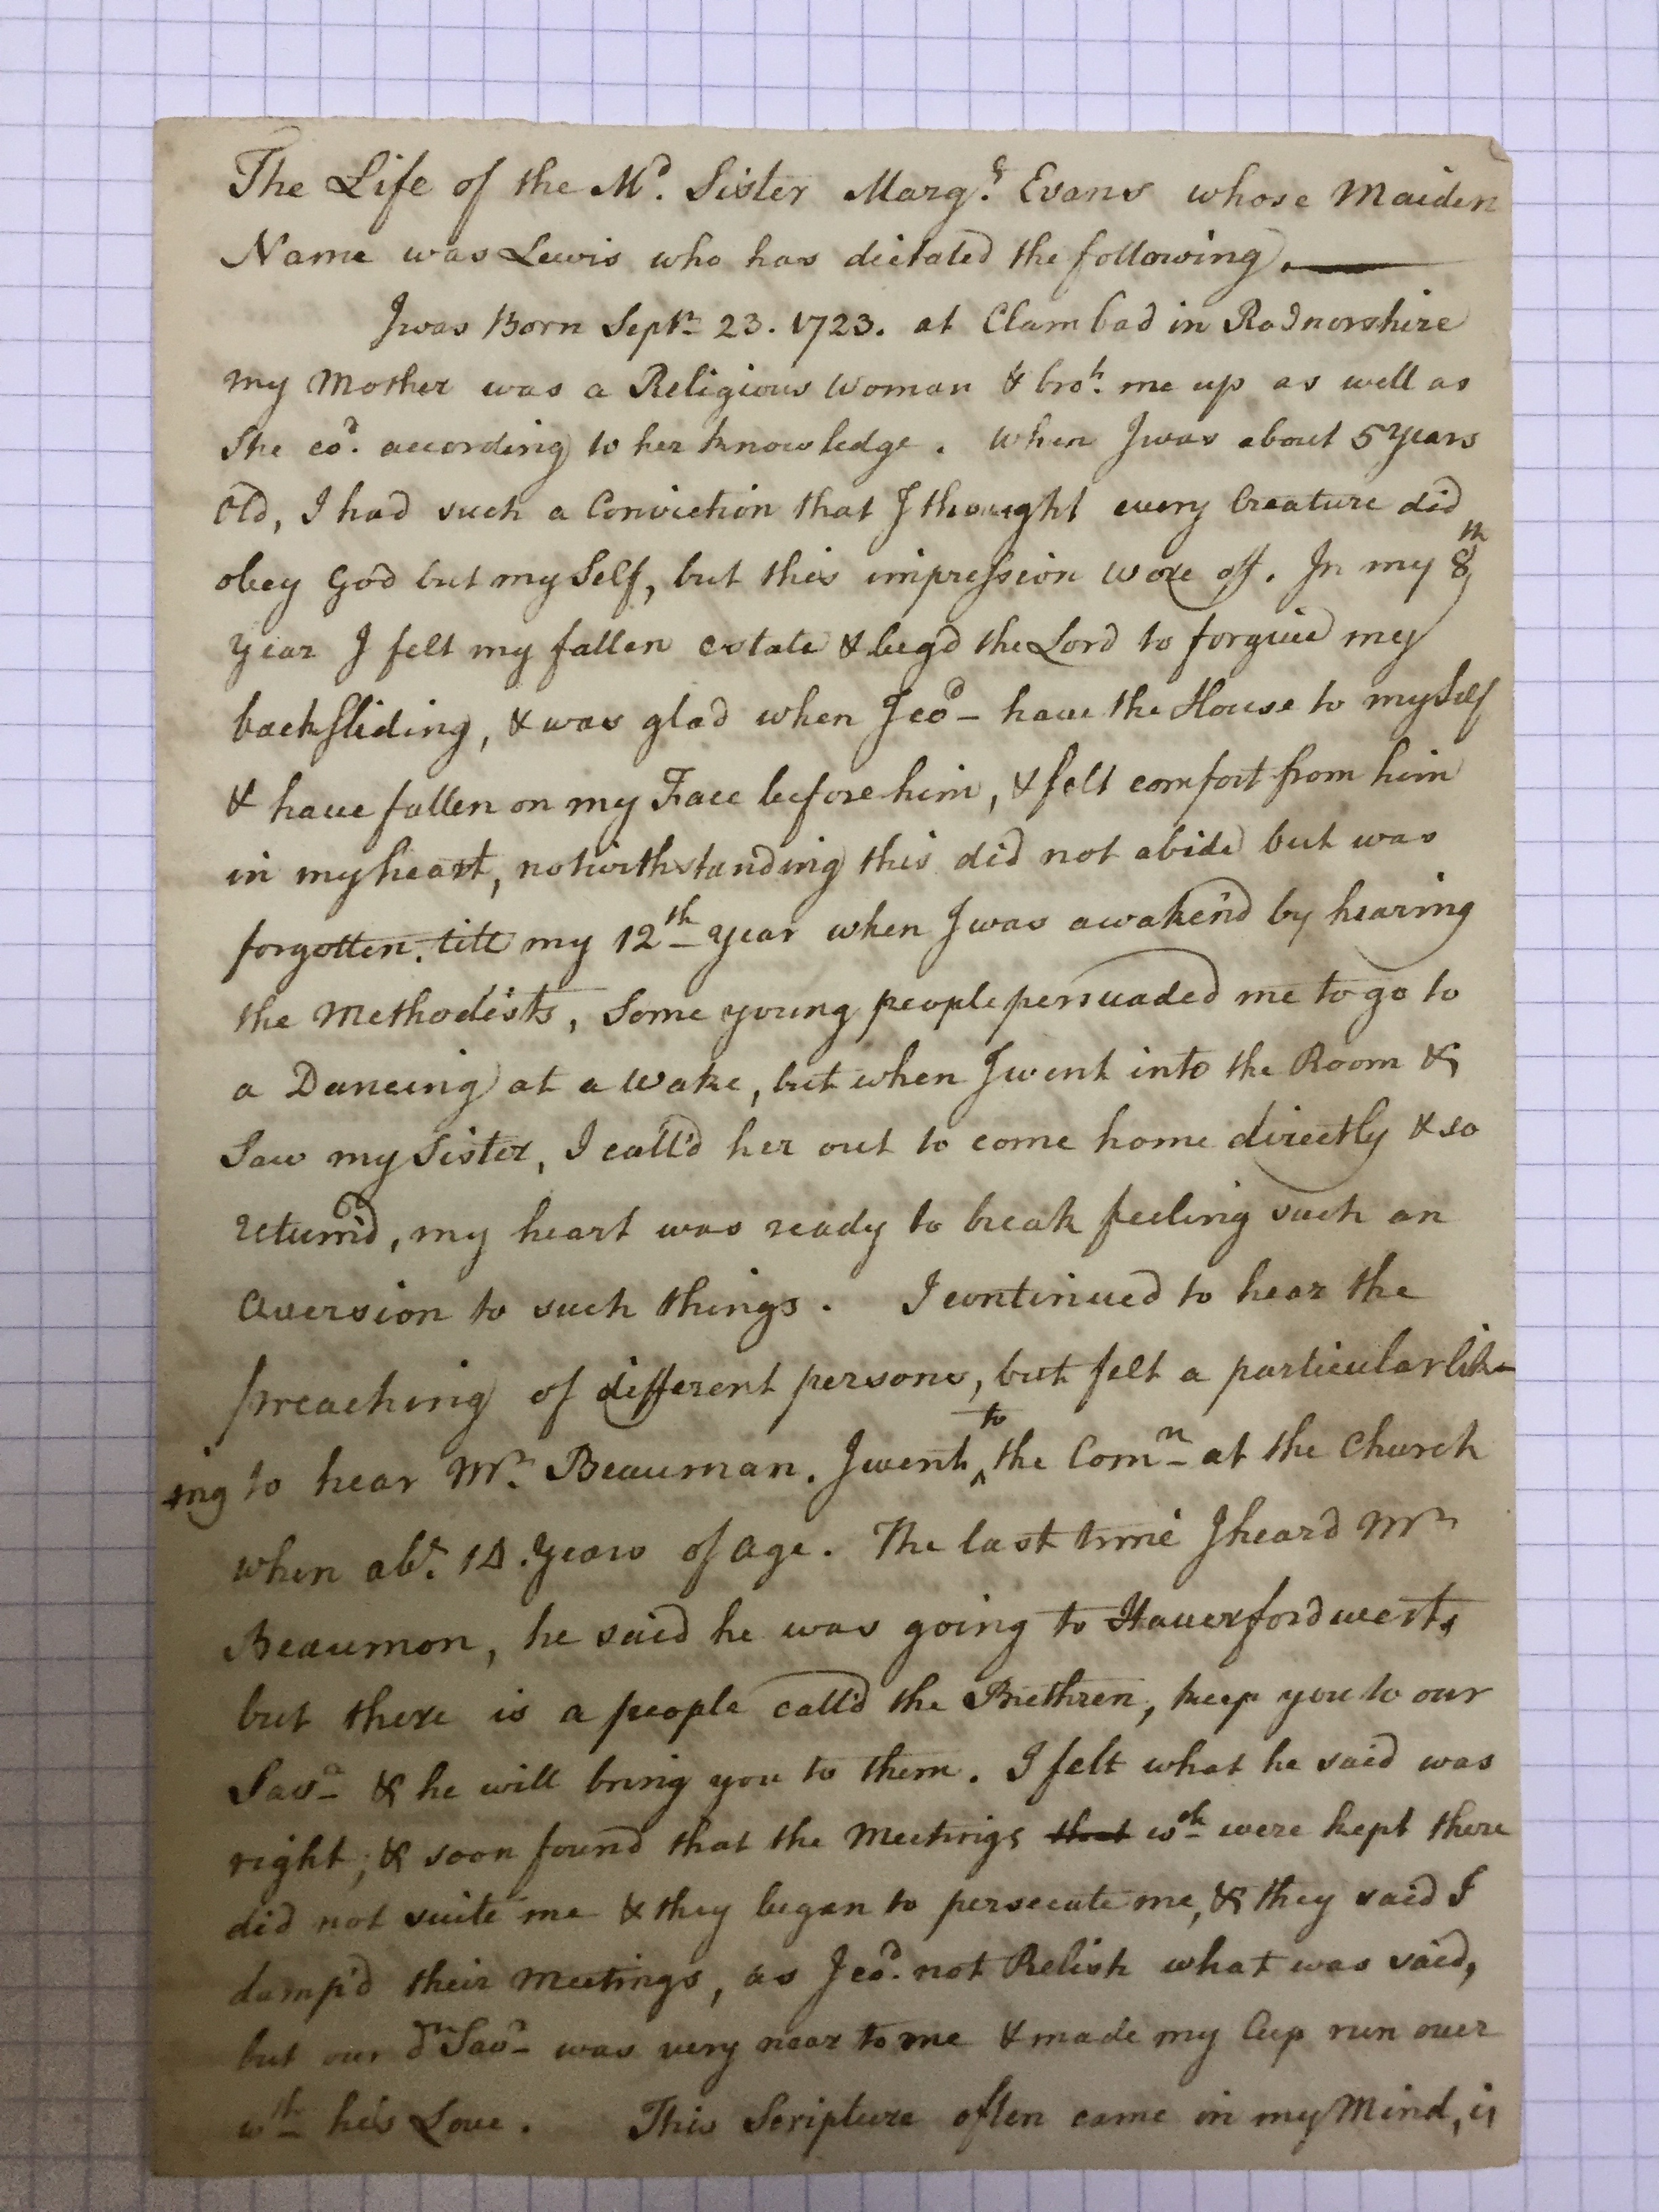 The Life of the Md. Sister Margt. Evans whose Maiden
Name was Lewis who has dictated the following.
I was Born Septr 23. 1723. at Clambad in Radnorshire
my Mother was a Religious Woman & brot. me up as well as
She cod. according to her knowledge. When I was about 5 years
Old, I had such a Conviction that I thought every Creature did
obey God but my Self, but this impression wore off. In my 8th
year I felt my fallen estate & beg'd the Lord to forgive my
backsliding, & was glad when I cod have the House to my Self
& have fallen on my Face before him, & felt comfort from him
in my heart, notwithstanding this did not abide but was
forgotten. till my 12th year when I was awaken'd by hearing
the Methodists, Some young people persuaded me to go to
a Dancing at a Wake, but when I went into the Room &
Saw my Sister, I call'd her out to come home directly & so
return'd, my heart was ready to break feeling such an
aversion to such things. I continued to hear the
preaching of different persons, but felt a particular lik-
ing to hear Mr. Beauman. I went to the Comn at the Church
when abt. 14 Years of Age. The last time I heard Mr
Beaumon, he said he was going to Haverfordwest,
but there is a people call'd the Brethren, keep you to our
Savr & he will bring you to them. I felt what he said was
right; & soon found that the Meetings that wch were kept there
did not suite me & they began to persecute me, & they said I
damp'd their Meetings, as I cod. not Relish what was said,
but our dr Savr was very near to me & made my Cup run over
wth his Love. This Scripture often came in my Mind, is